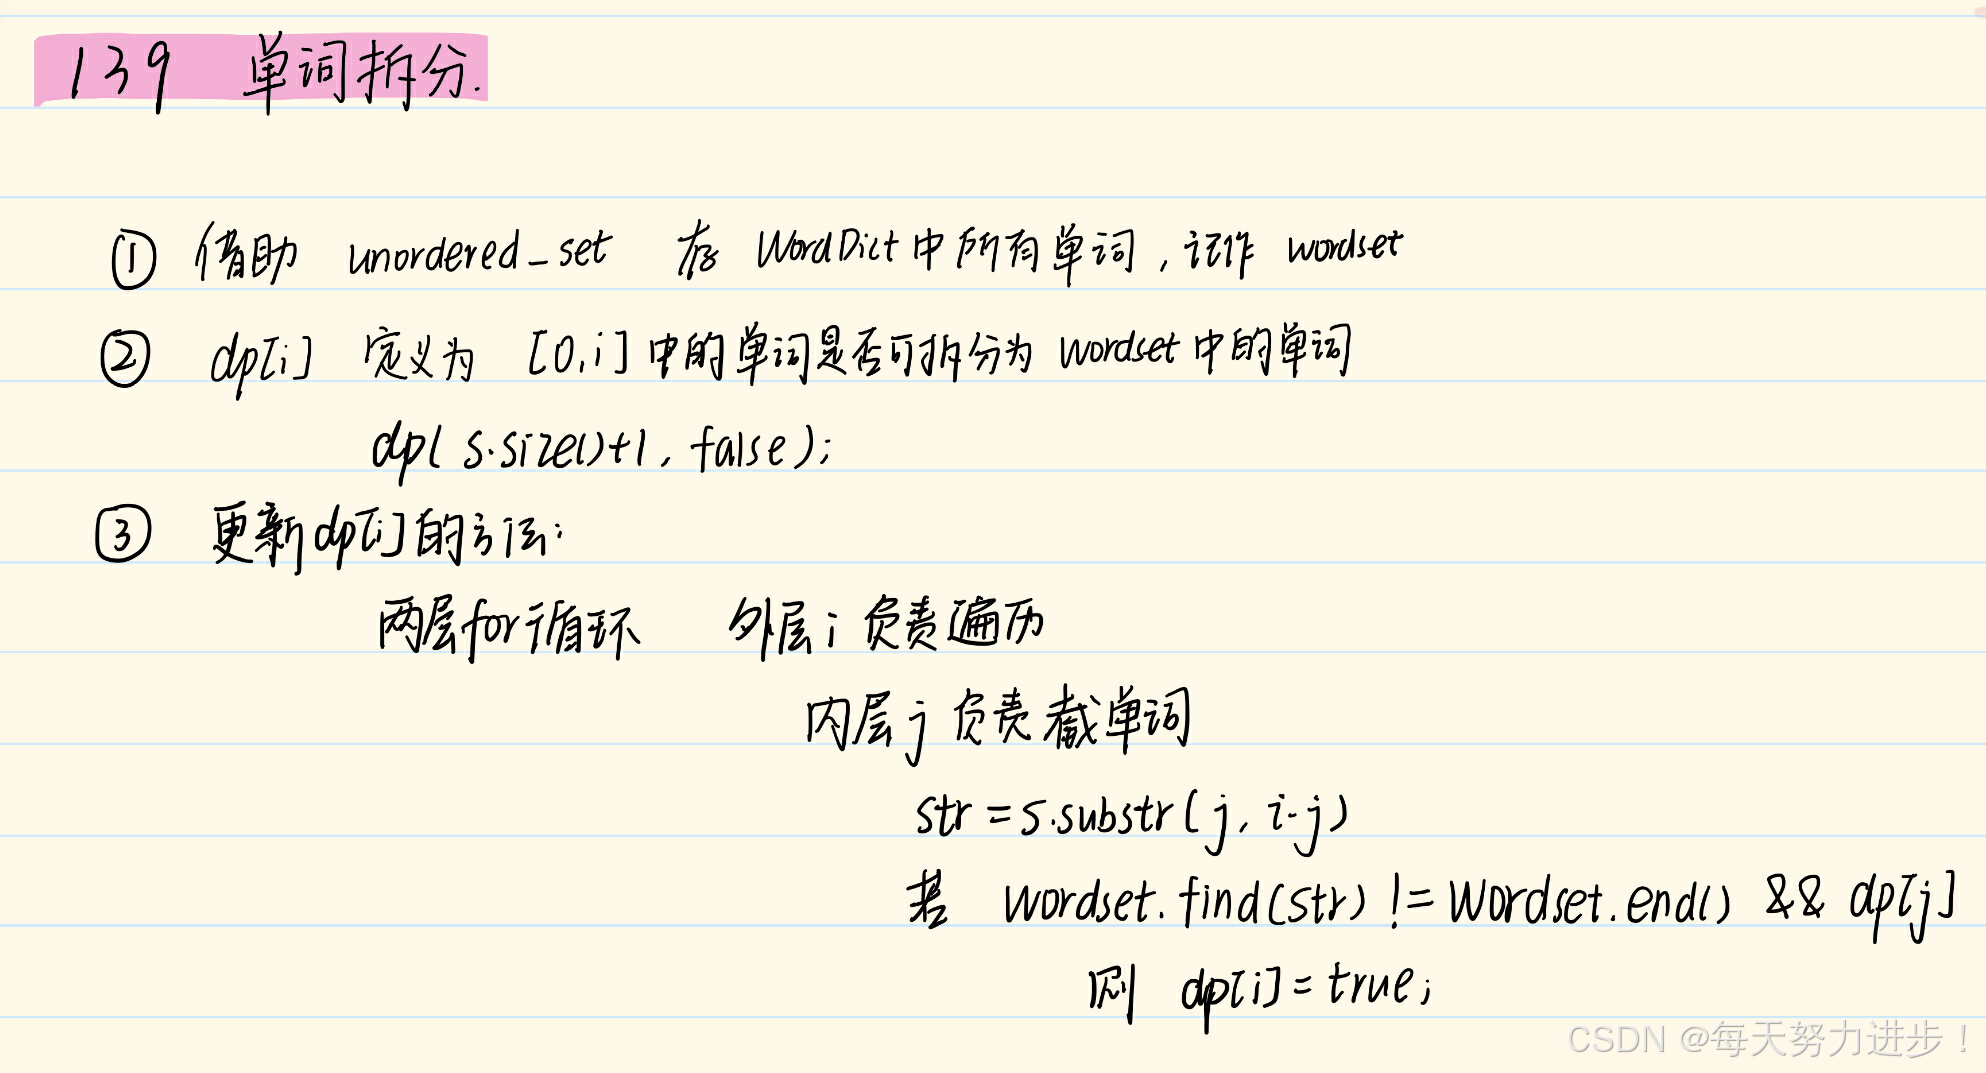 139 单词拆分.
① 借助 unordered_set 存 WordDict中所有单词，记作 wordset
② dp[i] 定义为 [0,i]中的单词是否可拆分为 wordset中的单词
dp( s.size()+1, false);
③ 更新dp[i]的方法:
两层for循环 外层i负责遍历
内层j负责截单词
str = s.substr(j, i-j)
若 wordset.find(str) != wordset.end() && dp[j]
则 dp[i]=true;
CSDN @每天努力进步！